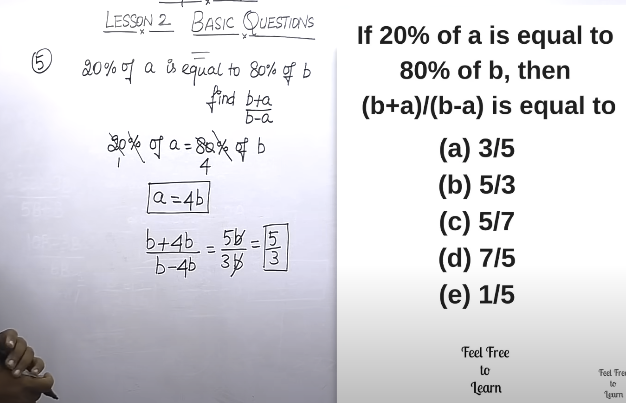 LESSON 2 BASIC QUESTIONS
5 20% of a is equal to 80% of b
find b+a
b-a
20% of a = 80% of b
1 4
a = 4b
b+4b = 5b = 5
b-4b 3b 3
If 20% of a is equal to
80% of b, then
(b+a)/(b-a) is equal to
(a) 3/5
(b) 5/3
(c) 5/7
(d) 7/5
(e) 1/5
Feel Free
to
Learn
Feel Free
to
Learn